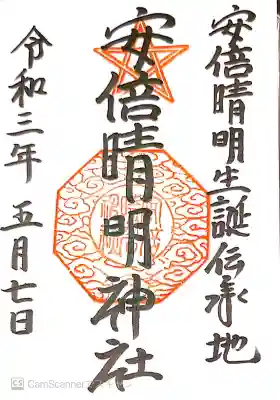 安倍晴明生誕伝承地
安倍晴明神社
令和三年 五月七日
CS CamScanner